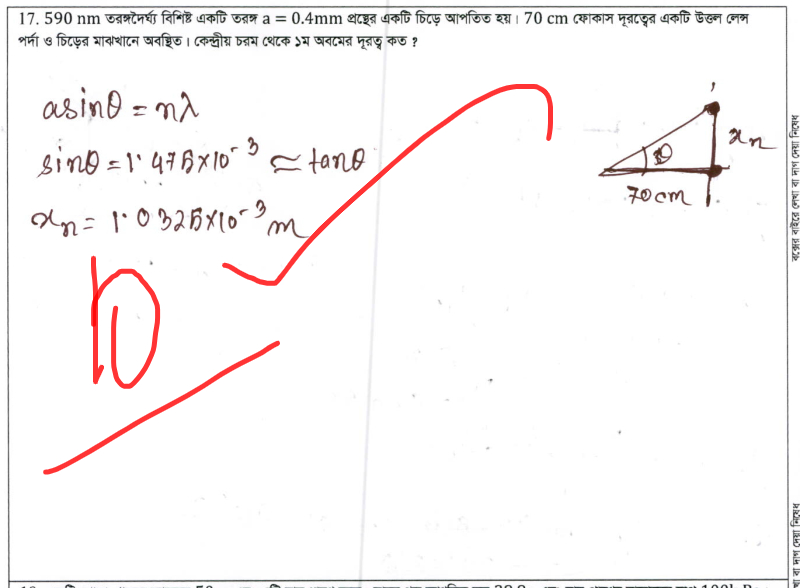 17. 590 nm তরঙ্গদৈর্ঘ্য বিশিষ্ট একটি তরঙ্গ a = 0.4mm প্রস্থের একটি চিড়ে আপতিত হয়। 70 cm ফোকাস দূরত্বের একটি উত্তল লেন্স
পর্দা ও চিড়ের মাঝখানে অবস্থিত। কেন্দ্রীয় চরম থেকে ১ম অবমের দূরত্ব কত ?
asinθ = nλ
sinθ = 1.475×10⁻³ ≃ tanθ
xₙ = 1.0325×10⁻³ m
θ
xₙ
70 cm
10
বক্সের বাইরে লেখা বা দাগ দেয়া নিষেধ
বা দাগ দেয়া নিষেধ